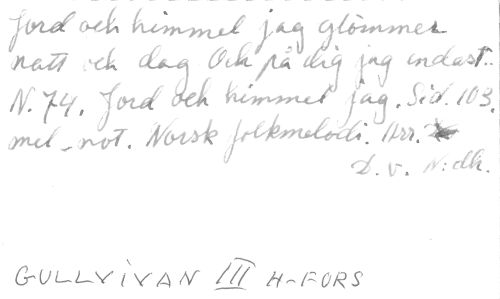 Jord och himmel jag glömmer
natt och dag Och på dig jag endast..
N. 74. Jord och himmel jag. Sid. 103.
mel-not. Norsk folkmelodi. Arr.
D. v. N:dh.
GULLVIVAN III H-FORS